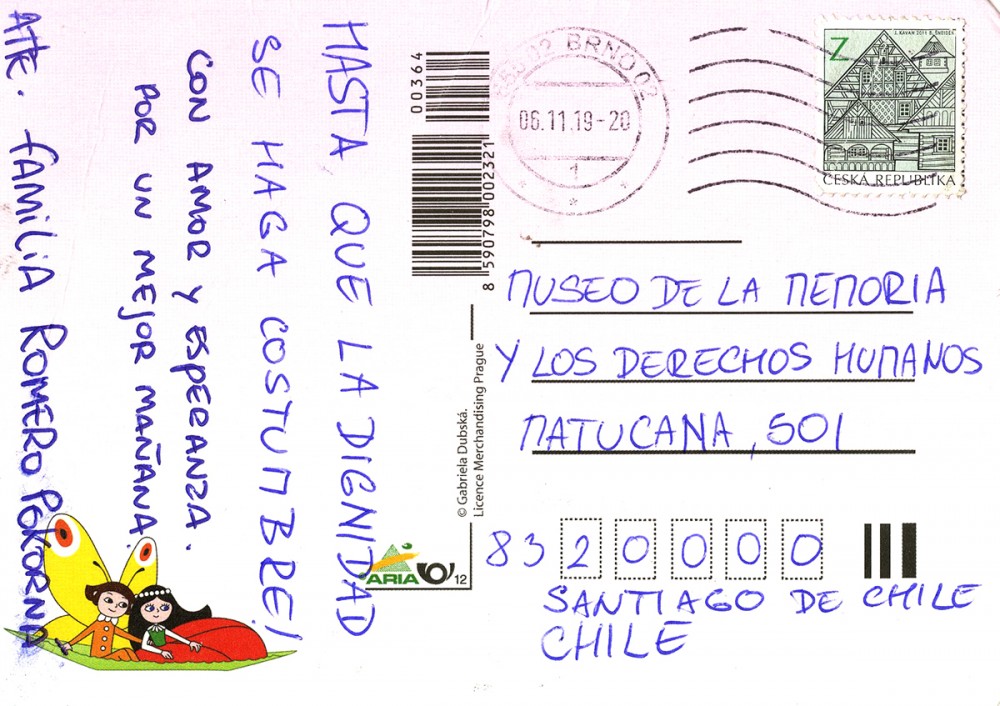 HASTA QUE LA DIGNIDAD
SE HAGA COSTUMBRE!
CON AMOR Y ESPERANZA.
POR UN MEJOR MAÑANA.
ATTE. FAMILIA ROMERO POKORNA
00364
8 590798 002321
© Gabriela Dubská.
Licence Merchandising Prague
ARIA
12
BRNO 02
06.11.19-20
1
Z
J. KAVAN 2011 B. ŠNEIDER
ČESKÁ REPUBLIKA
MUSEO DE LA MEMORIA
Y LOS DERECHOS HUMANOS
MATUCANA, 501
8320000
SANTIAGO DE CHILE
CHILE